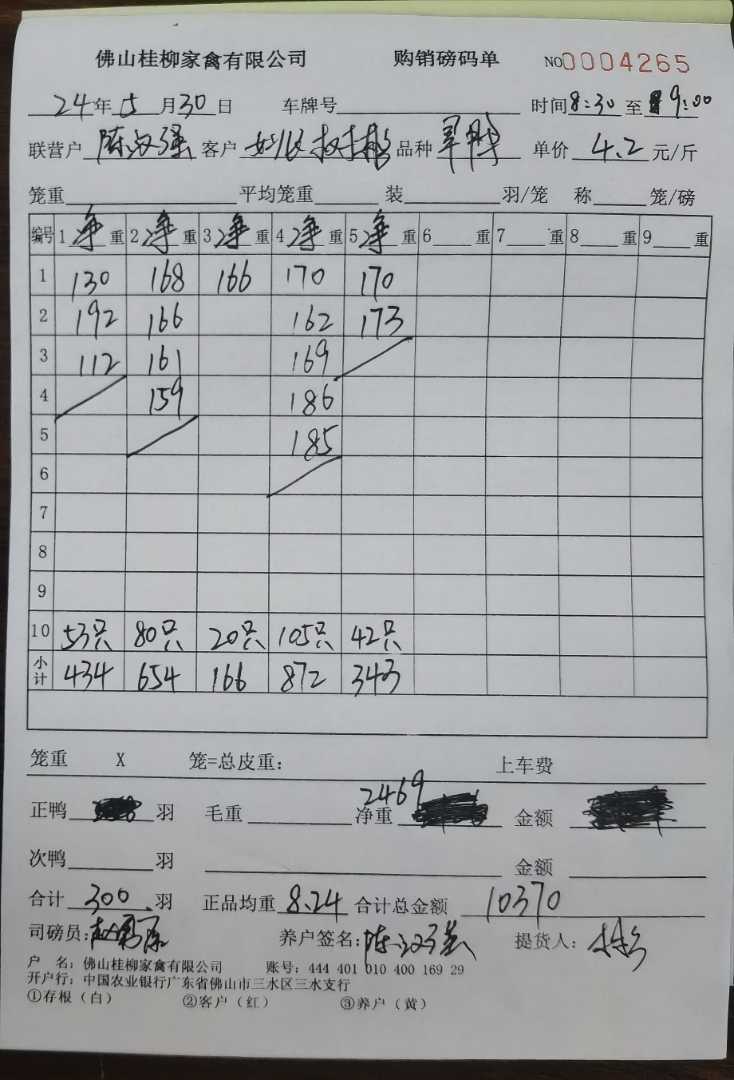 佛山桂柳家禽有限公司 购销磅码单 NO 0004265
24年5月30日 车牌号 时间8:30至9:00
联营户 陈汉强 客户 品种 单价 4.2 元/斤
笼重 平均笼重 装 羽/笼 称 笼/磅
编号 1净重 2净重 3净重 4净重 5净重 6 重 7 重 8 重 9 重
1 130 168 166 170 170
2 192 166 162 173
3 112 161 169
4 159 186
5 185
6
7
8
9
10 53只 80只 20只 105只 42只
小计 434 654 166 872 343
笼重 X 笼=总皮重: 上车费
正鸭 羽 毛重 净重 2469 金额
次鸭 羽 金额
合计 300 羽 正品均重 8.24 合计总金额 10370
司磅员: 养户签名: 陈汉强 提货人:
户 名: 佛山桂柳家禽有限公司 账号: 444 401 010 400 169 29
开户行: 中国农业银行广东省佛山市三水区三水支行
①存根(白) ②客户(红) ③养户(黄)